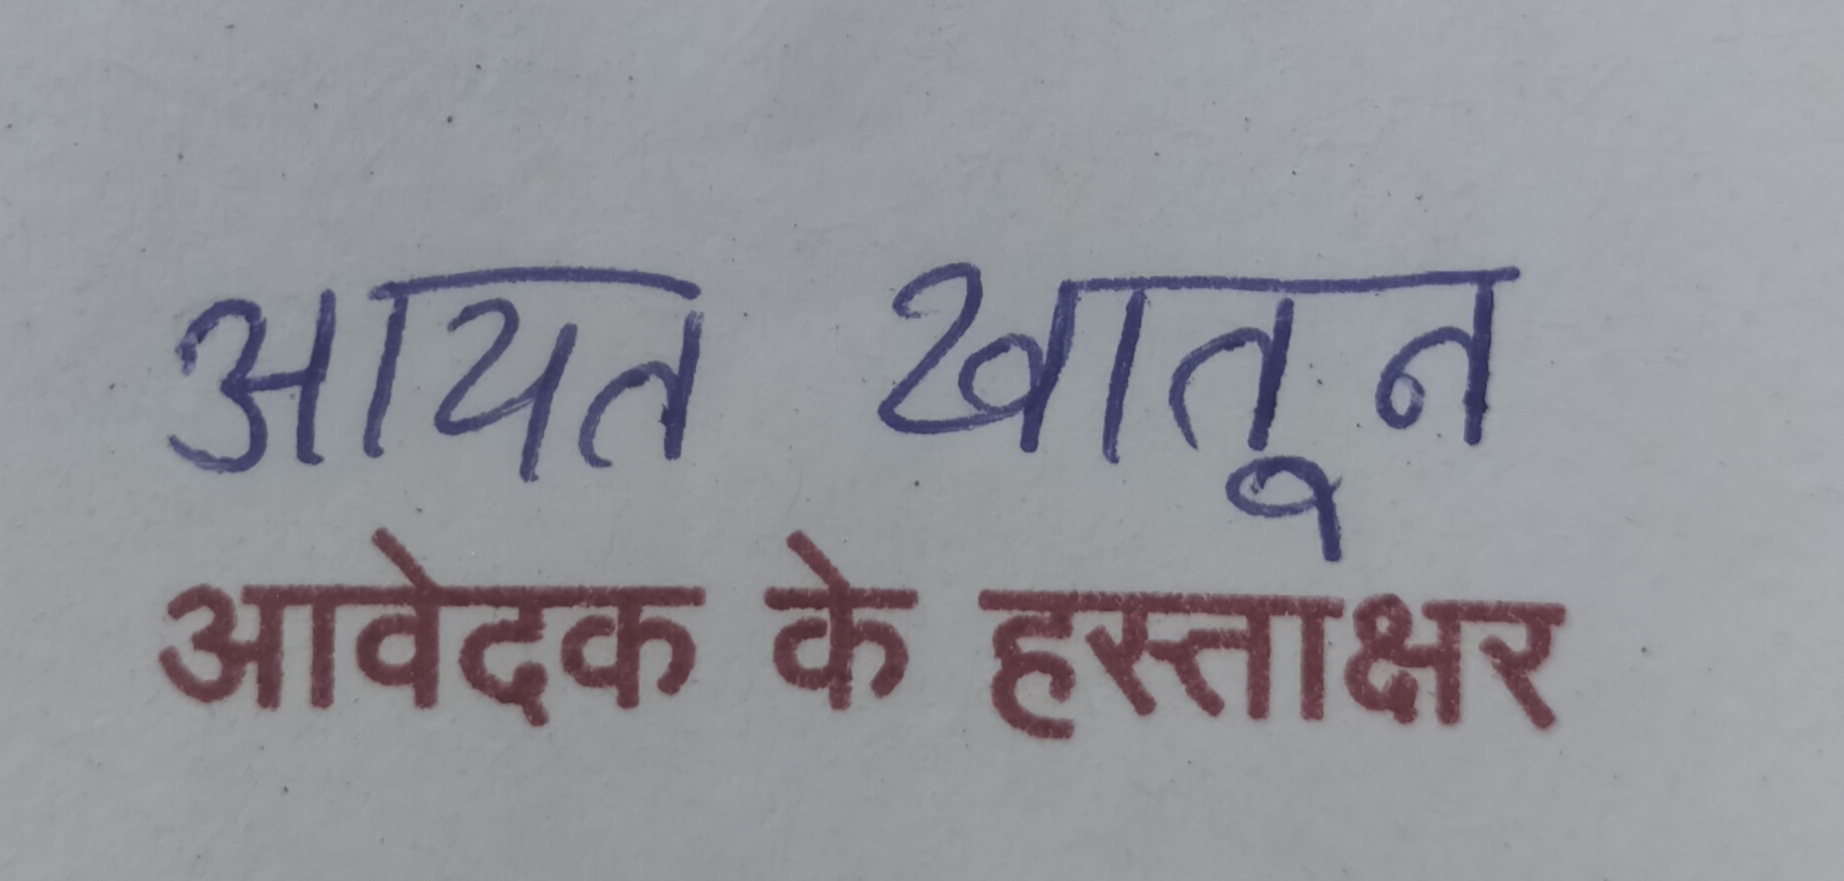 आयत खातून
आवेदक के हस्ताक्षर